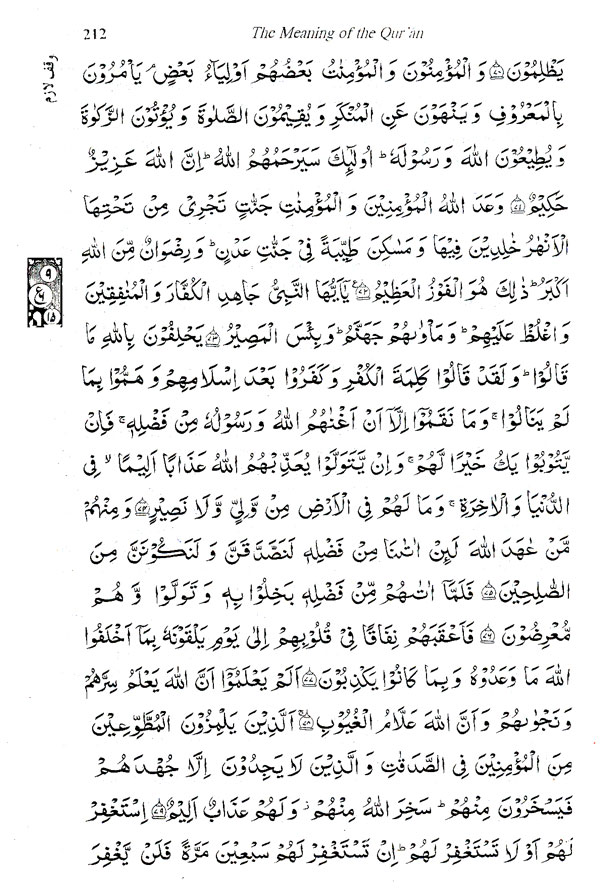 212
The Meaning of the Qur'an
وقف لازم
يَظْلِمُوْنَ ۝٧٠ وَ الْمُؤْمِنُوْنَ وَ الْمُؤْمِنٰتُ بَعْضُهُمْ اَوْلِيَآءُ بَعْضٍ ۘ يَاْمُرُوْنَ
بِالْمَعْرُوْفِ وَ يَنْهَوْنَ عَنِ الْمُنْكَرِ وَ يُقِيْمُوْنَ الصَّلٰوةَ وَ يُؤْتُوْنَ الزَّكٰوةَ
وَ يُطِيْعُوْنَ اللّٰهَ وَ رَسُوْلَهٗ ؕ اُولٰٓئِكَ سَيَرْحَمُهُمُ اللّٰهُ ؕ اِنَّ اللّٰهَ عَزِيْزٌ
حَكِيْمٌ ۝٧١ وَعَدَ اللّٰهُ الْمُؤْمِنِيْنَ وَ الْمُؤْمِنٰتِ جَنّٰتٍ تَجْرِيْ مِنْ تَحْتِهَا
الْاَنْهٰرُ خٰلِدِيْنَ فِيْهَا وَ مَسٰكِنَ طَيِّبَةً فِيْ جَنّٰتِ عَدْنٍ ؕ وَ رِضْوَانٌ مِّنَ اللّٰهِ
اَكْبَرُ ؕ ذٰلِكَ هُوَ الْفَوْزُ الْعَظِيْمُ ۝٧٢ يٰۤاَيُّهَا النَّبِيُّ جَاهِدِ الْكُفَّارَ وَ الْمُنٰفِقِيْنَ
٩
ع
٦
١٥
وَ اغْلُظْ عَلَيْهِمْ ؕ وَ مَاْوٰىهُمْ جَهَنَّمُ ؕ وَ بِئْسَ الْمَصِيْرُ ۝٧٣ يَحْلِفُوْنَ بِاللّٰهِ مَا
قَالُوْا ؕ وَ لَقَدْ قَالُوْا كَلِمَةَ الْكُفْرِ وَ كَفَرُوْا بَعْدَ اِسْلَامِهِمْ وَ هَمُّوْا بِمَا
لَمْ يَنَالُوْا ۚ وَ مَا نَقَمُوْۤا اِلَّاۤ اَنْ اَغْنٰىهُمُ اللّٰهُ وَ رَسُوْلُهٗ مِنْ فَضْلِهٖ ۚ فَاِنْ
يَّتُوْبُوْا يَكُ خَيْرًا لَّهُمْ ۚ وَ اِنْ يَّتَوَلَّوْا يُعَذِّبْهُمُ اللّٰهُ عَذَابًا اَلِيْمًا ۙ فِي
الدُّنْيَا وَ الْاٰخِرَةِ ۚ وَ مَا لَهُمْ فِي الْاَرْضِ مِنْ وَّلِيٍّ وَّ لَا نَصِيْرٍ ۝٧٤ وَ مِنْهُمْ
مَّنْ عٰهَدَ اللّٰهَ لَئِنْ اٰتٰىنَا مِنْ فَضْلِهٖ لَنَصَّدَّقَنَّ وَ لَنَكُوْنَنَّ مِنَ
الصّٰلِحِيْنَ ۝٧٥ فَلَمَّاۤ اٰتٰىهُمْ مِّنْ فَضْلِهٖ بَخِلُوْا بِهٖ وَ تَوَلَّوْا وَّ هُمْ
مُّعْرِضُوْنَ ۝٧٦ فَاَعْقَبَهُمْ نِفَاقًا فِيْ قُلُوْبِهِمْ اِلٰى يَوْمِ يَلْقَوْنَهٗ بِمَاۤ اَخْلَفُوا
اللّٰهَ مَا وَعَدُوْهُ وَ بِمَا كَانُوْا يَكْذِبُوْنَ ۝٧٧ اَلَمْ يَعْلَمُوْۤا اَنَّ اللّٰهَ يَعْلَمُ سِرَّهُمْ
وَ نَجْوٰىهُمْ وَ اَنَّ اللّٰهَ عَلَّامُ الْغُيُوْبِ ۝٧٨ اَلَّذِيْنَ يَلْمِزُوْنَ الْمُطَّوِّعِيْنَ
مِنَ الْمُؤْمِنِيْنَ فِي الصَّدَقٰتِ وَ الَّذِيْنَ لَا يَجِدُوْنَ اِلَّا جُهْدَهُمْ
فَيَسْخَرُوْنَ مِنْهُمْ ؕ سَخِرَ اللّٰهُ مِنْهُمْ ؗ وَ لَهُمْ عَذَابٌ اَلِيْمٌ ۝٧٩ اِسْتَغْفِرْ
لَهُمْ اَوْ لَا تَسْتَغْفِرْ لَهُمْ ؕ اِنْ تَسْتَغْفِرْ لَهُمْ سَبْعِيْنَ مَرَّةً فَلَنْ يَّغْفِرَ